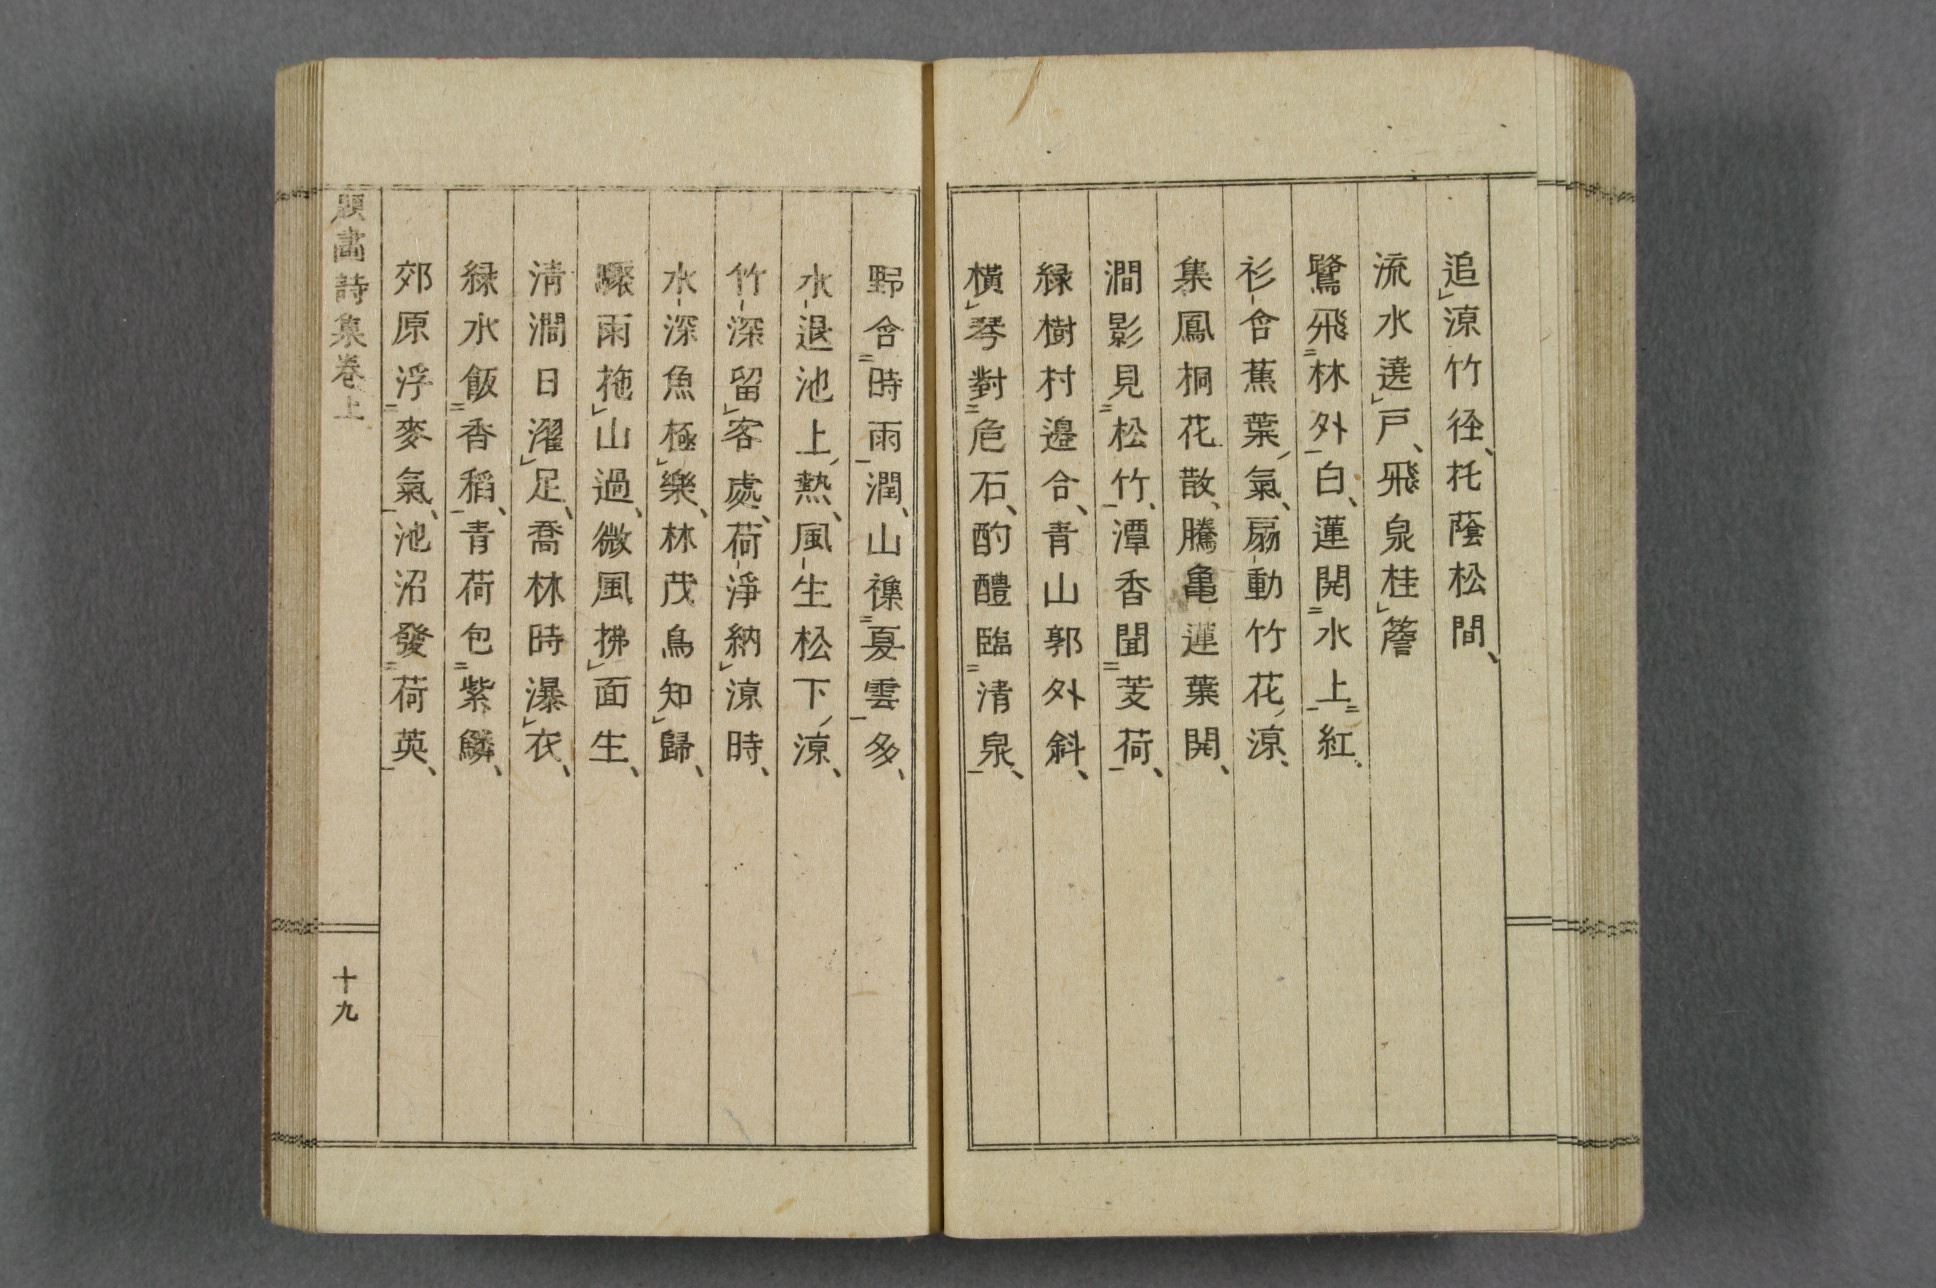 追涼竹径、托蔭松間、
流水遶戸、飛泉桂簷
鷺飛林外白、蓮開水上紅、
衫含蕉葉氣、扇動竹花涼、
集鳳桐花散、騰亀蓮葉開、
澗影見松竹、潭香聞芰荷、
緑樹村邊合、青山郭外斜、
横琴對危石、酌醴臨清泉、
野含時雨潤、山襍夏雲多、
水退池上熱、風生松下涼、
竹深留客處、荷淨納涼時、
水深魚極樂、林茂鳥知歸、
驟雨拖山過、微風拂面生、
清澗日濯足、喬林時瀑衣、
緑水飯香稲、青荷包紫鱗、
郊原浮麥氣、池沼發荷英、
題畵詩集卷上
十九